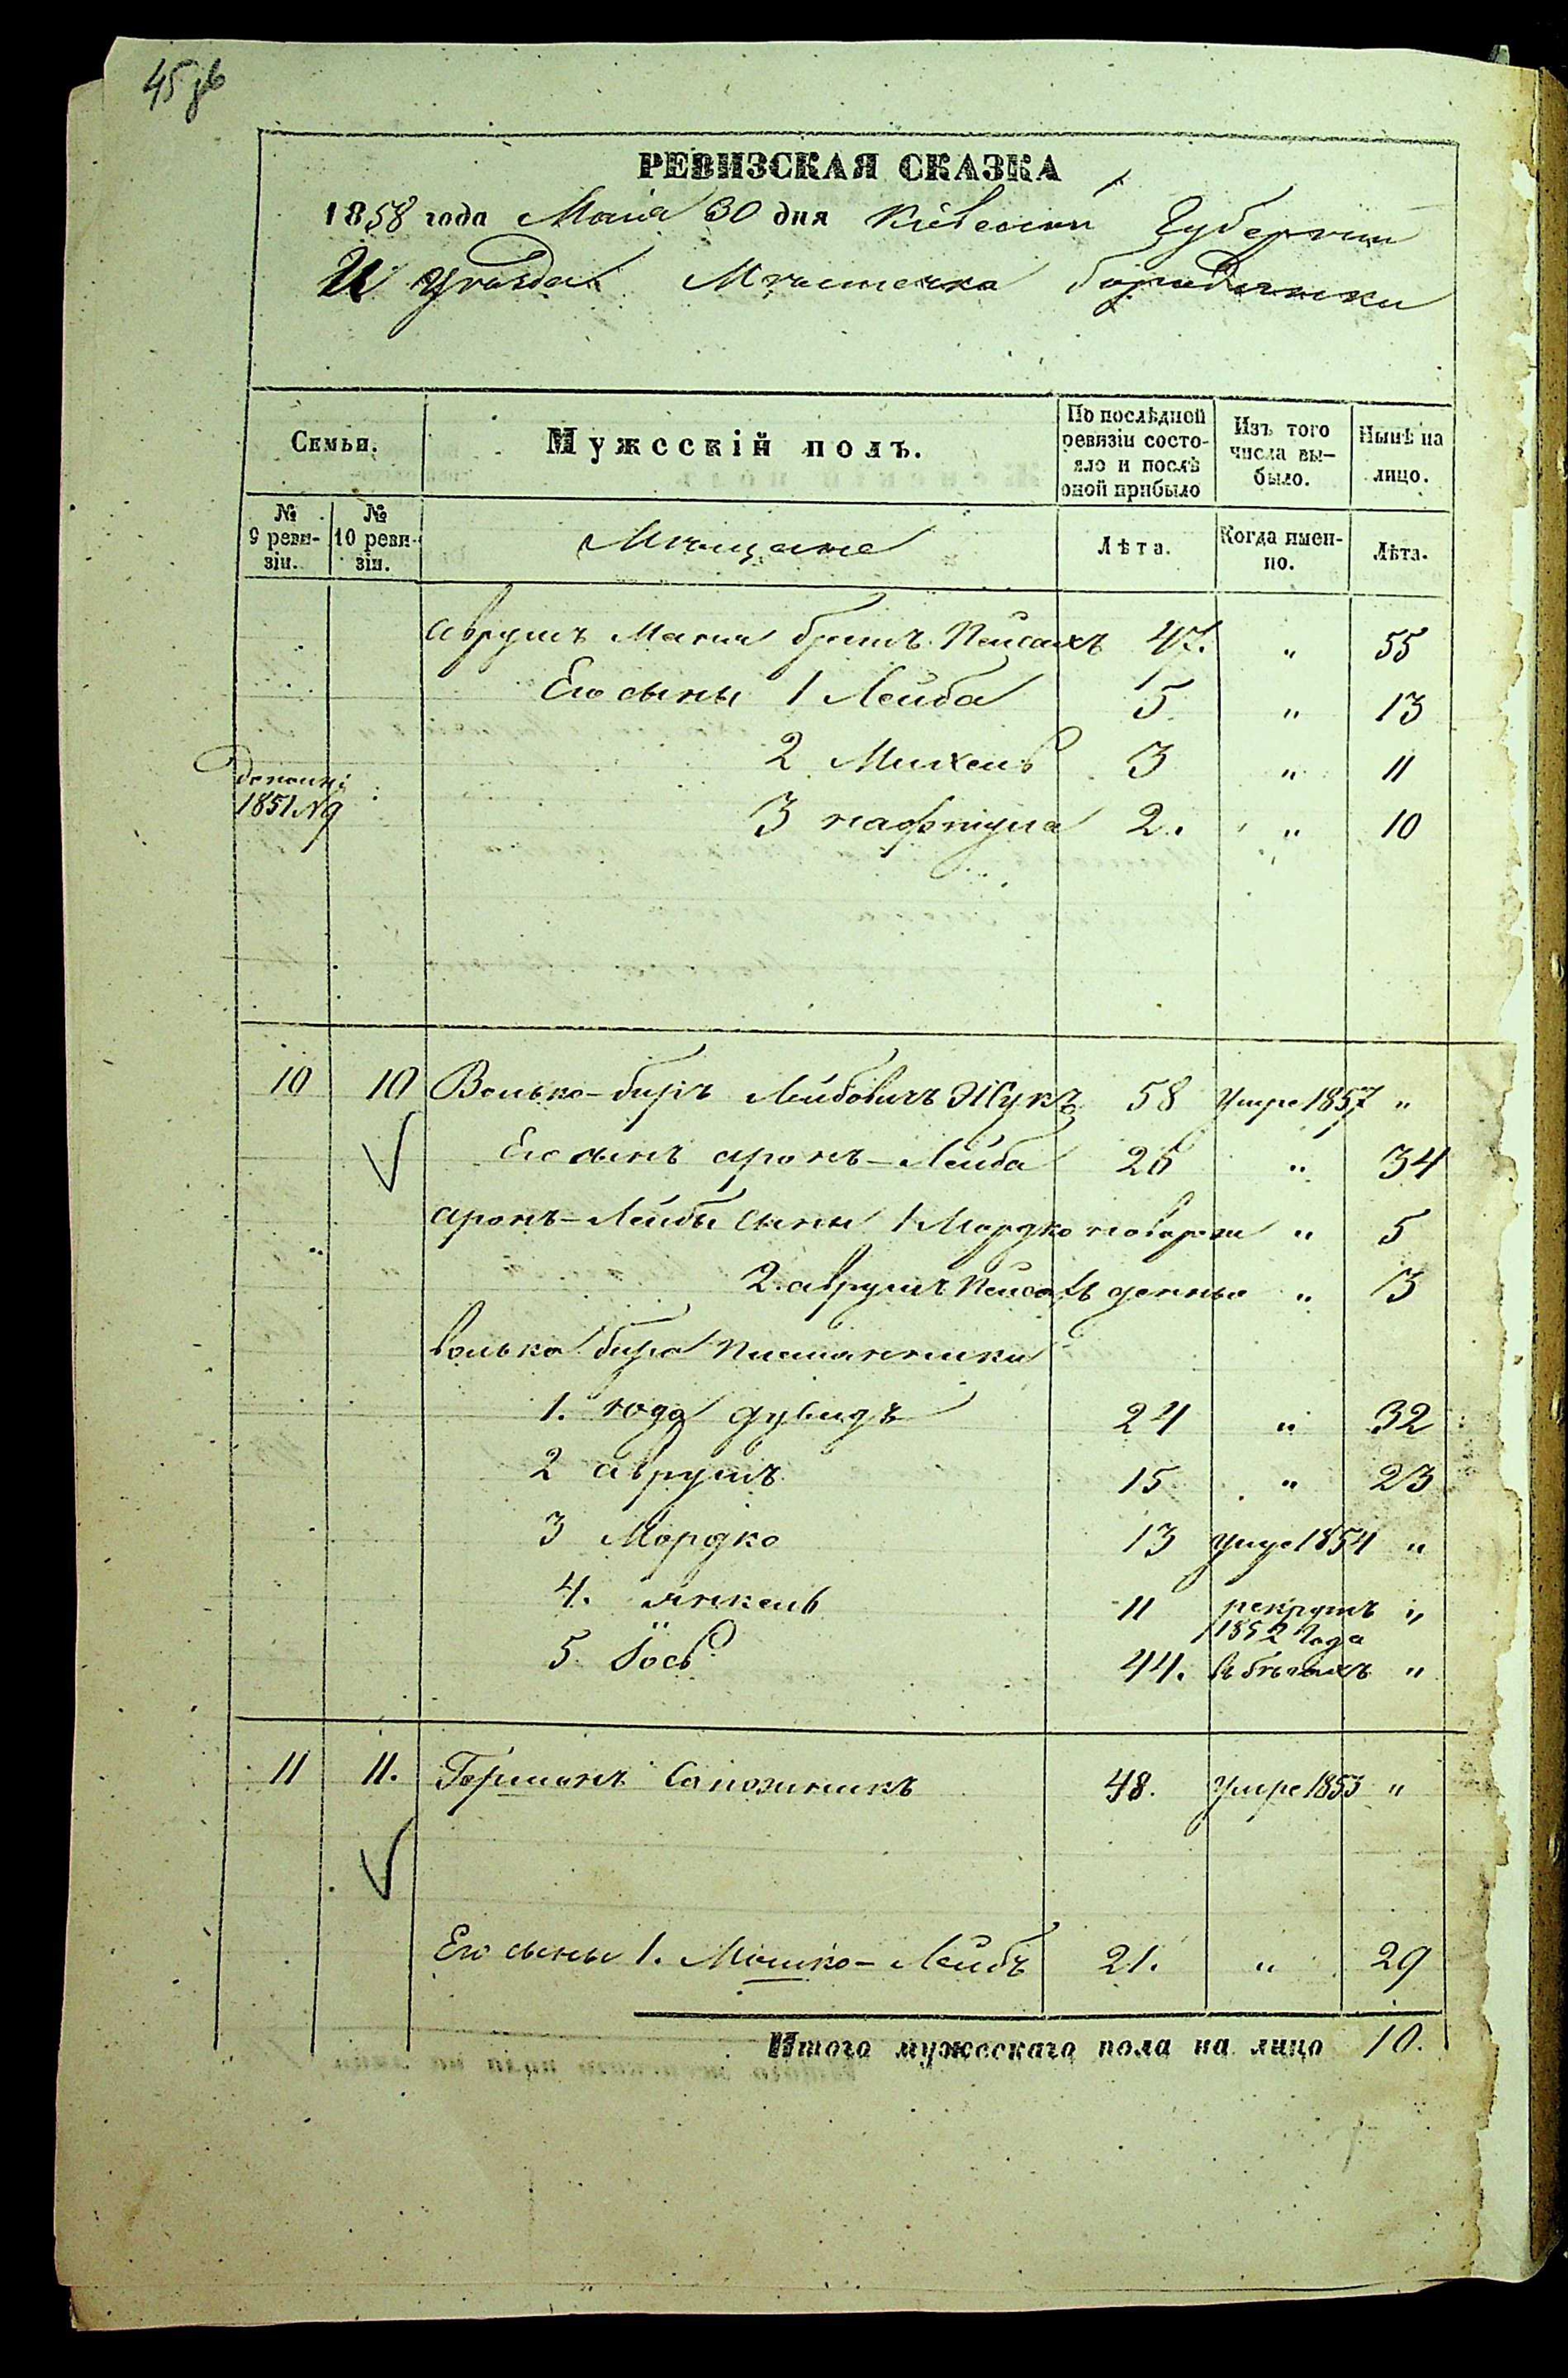 45
РЕВИЗСКАЯ СКАЗКА
1858 года Маія 30 дня Кіевской Губерніи
И уѣзда Мѣстечка Бородянки
Семьи.
Мужсскій полъ.
По послѣдной ревизіи состояло и послѣ оной прибыло
Изъ того числа выбыло.
Нынѣ на лицо.
№ 9 ревизіи.
№ 10 ревизіи.
Мѣщане
Лѣта.
Когда именно.
Лѣта.
Аврумъ Мана братъ Пейсахъ 47. " 55
Его сыны 1 Лейба 5 " 13
2 Михель 3 " 11
1851 №9
3 нафтула 2. " 10
10 10 Волько-биръ Лейбовичъ Жукъ 58 Умре 1857 "
Его сынъ аронъ-Лейба 26 " 34
аронъ-Лейбы сыны 1 Мордко новорож " 5
2. аврумъ Пейсахъ " 3
волька бира племянники
1. юда дувидъ 24 " 32
2 аврумъ 15 " 23
3 Мордко 13 умре 1854 "
4. янкель 11 рекрутъ "
1852 года
5. Іось 44. въ бѣгахъ "
11 11. Германъ Сапожникъ 48. Умре 1853 "
Его сыны 1. Мошко-Лейбъ 21. " 29
Итого мужесскаго пола на лицо 10.